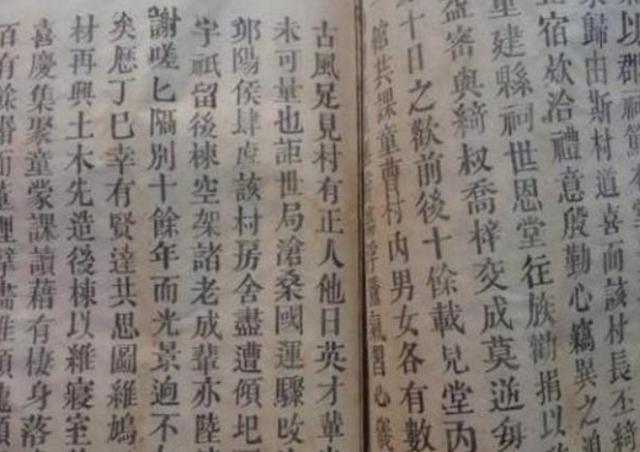 歸由斯村道喜而該村長丕綺
宿欵洽禮意殷勤心竊異之
重建縣祠世恩堂往族勸捐以
益密與綺叔喬梓交成莫逆每
十日之歡前後十餘載見堂內
館共課童曹村內男女各有數
古風足見村有正人他日英才輩
未可量也詎世局滄桑國運驟改
鄎陽侯肆虐該村房舍盡遭傾圯
宇祇留後棟空架諸老成輩亦陸
謝嗟匕隔別十餘年而光景逈不
矣歷丁巳幸有賢達共思圖維鳩
材再興土木先造後棟以維寢室
喜慶集聚童蒙課讀藉有棲身落